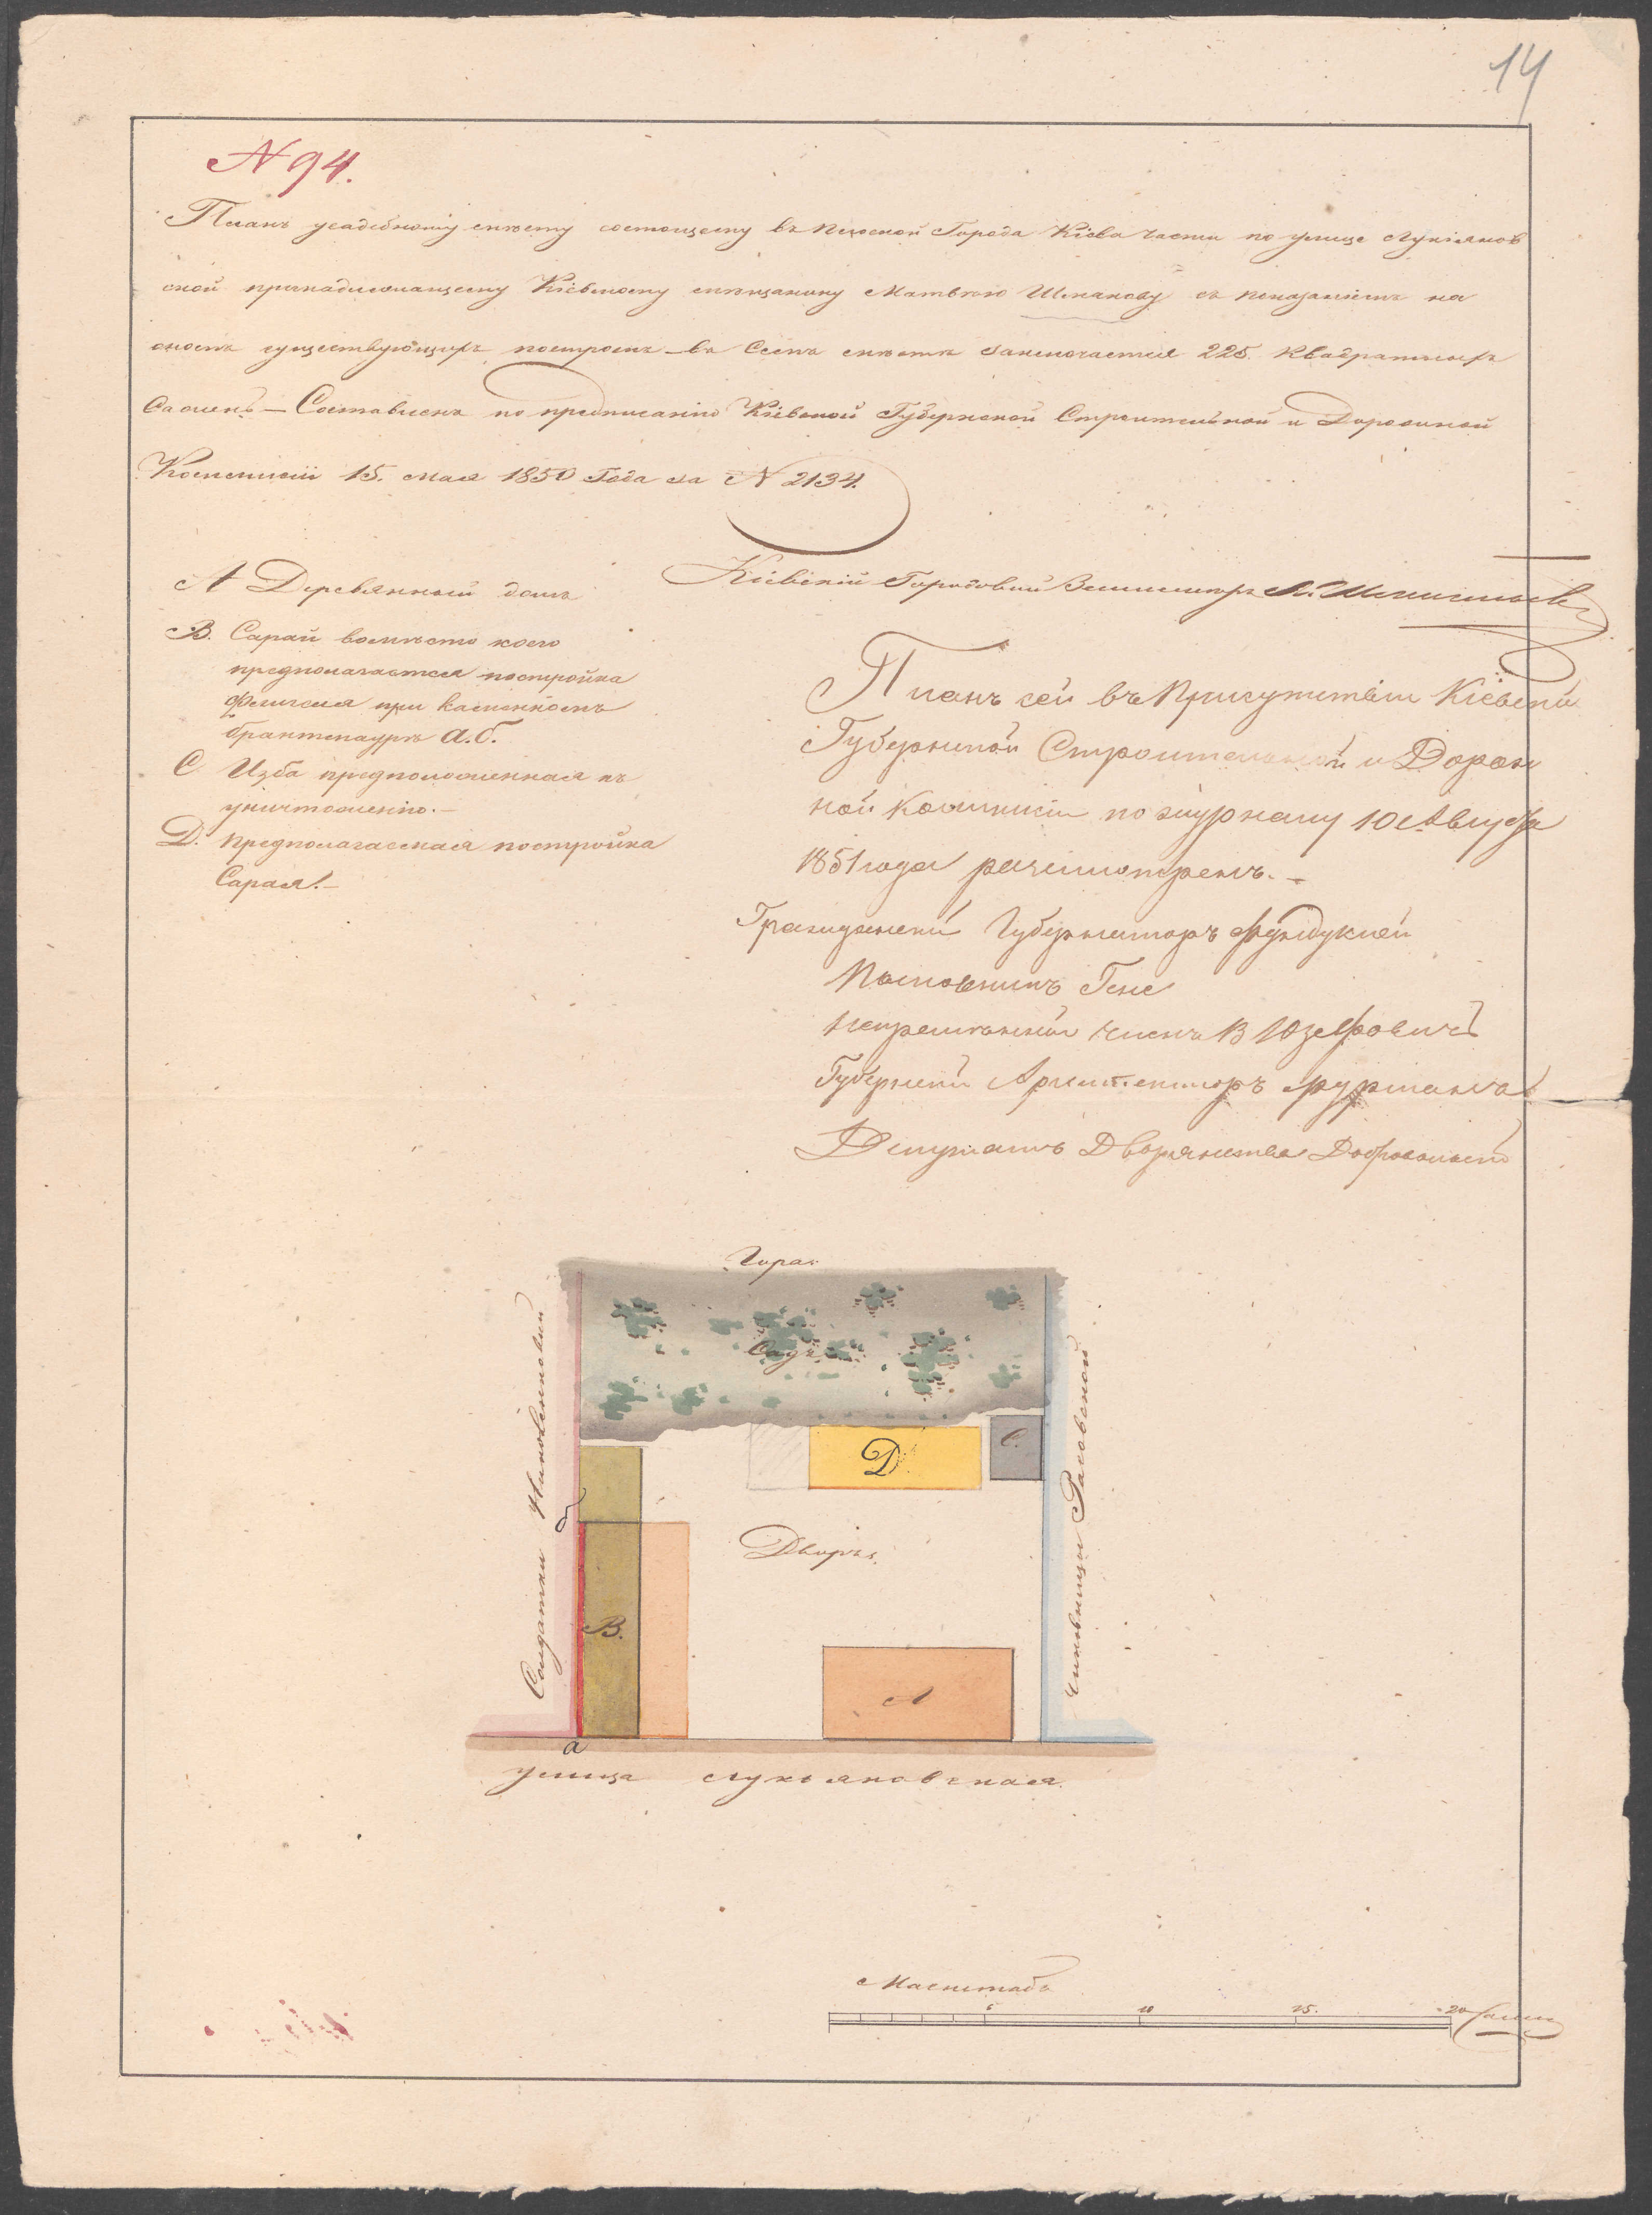 14
N 94.
Планъ усадебному мѣсту состоящему въ плоской Города Кіева части по улице Лукіянов
ской принадлежащему Кіевскому мѣщанину Матвѣю Шпакову съ показаніемъ на
ономъ существующихъ построекъ – въ семъ мѣстѣ заключается 225. Квадратныхъ
Сажень – Составленъ по предписанію Кіевской Губернской Строительной и Дорожной
Коммисіи 15. мая 1850 Года за N 2134.
Кіевскій Городовый Землемѣръ
А Деревянный домъ
В. Сарай вомѣсто коего
предполагается постройка
флигеля при каменномъ
брантмауръ а.б.
С. Изба предположенная къ
уничтоженію. –
D. предполагаемая постройка
Сарая. –
Планъ сей въ Присутствіи Кіевской
Губернской Строительной и Дорож
ной Коммисіи по журналу 10 Августа
1851 года разсмотренъ. –
Гражданскій Губернаторъ Фундуклей
Полковникъ
непремѣнный членъ В Юзефовичъ
Губернскій Архитекторъ
Депутатъ Дворянства
Гора
Садъ
D
С.
Дворъ.
В.
А
б
а
Солдатки
Чиновницы
улица Лукьяновская.
Масштабъ
5 10 15. 20 Сажен